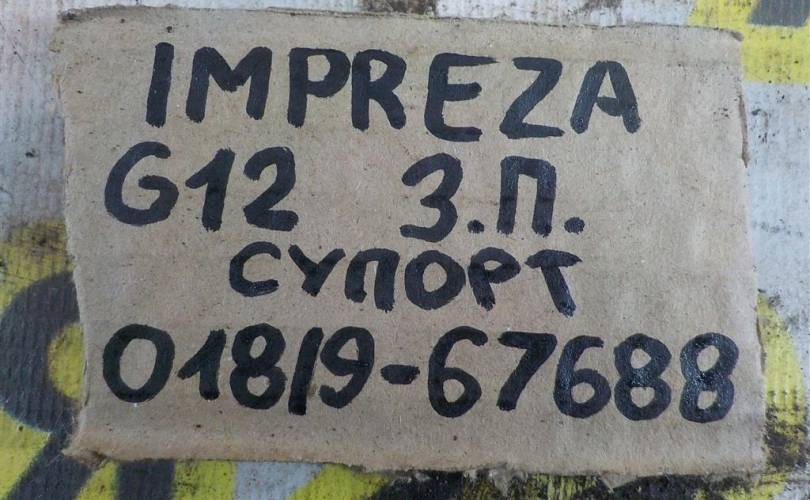 IMPREZA
G12 З.П.
СУПОРТ
018/9-67688